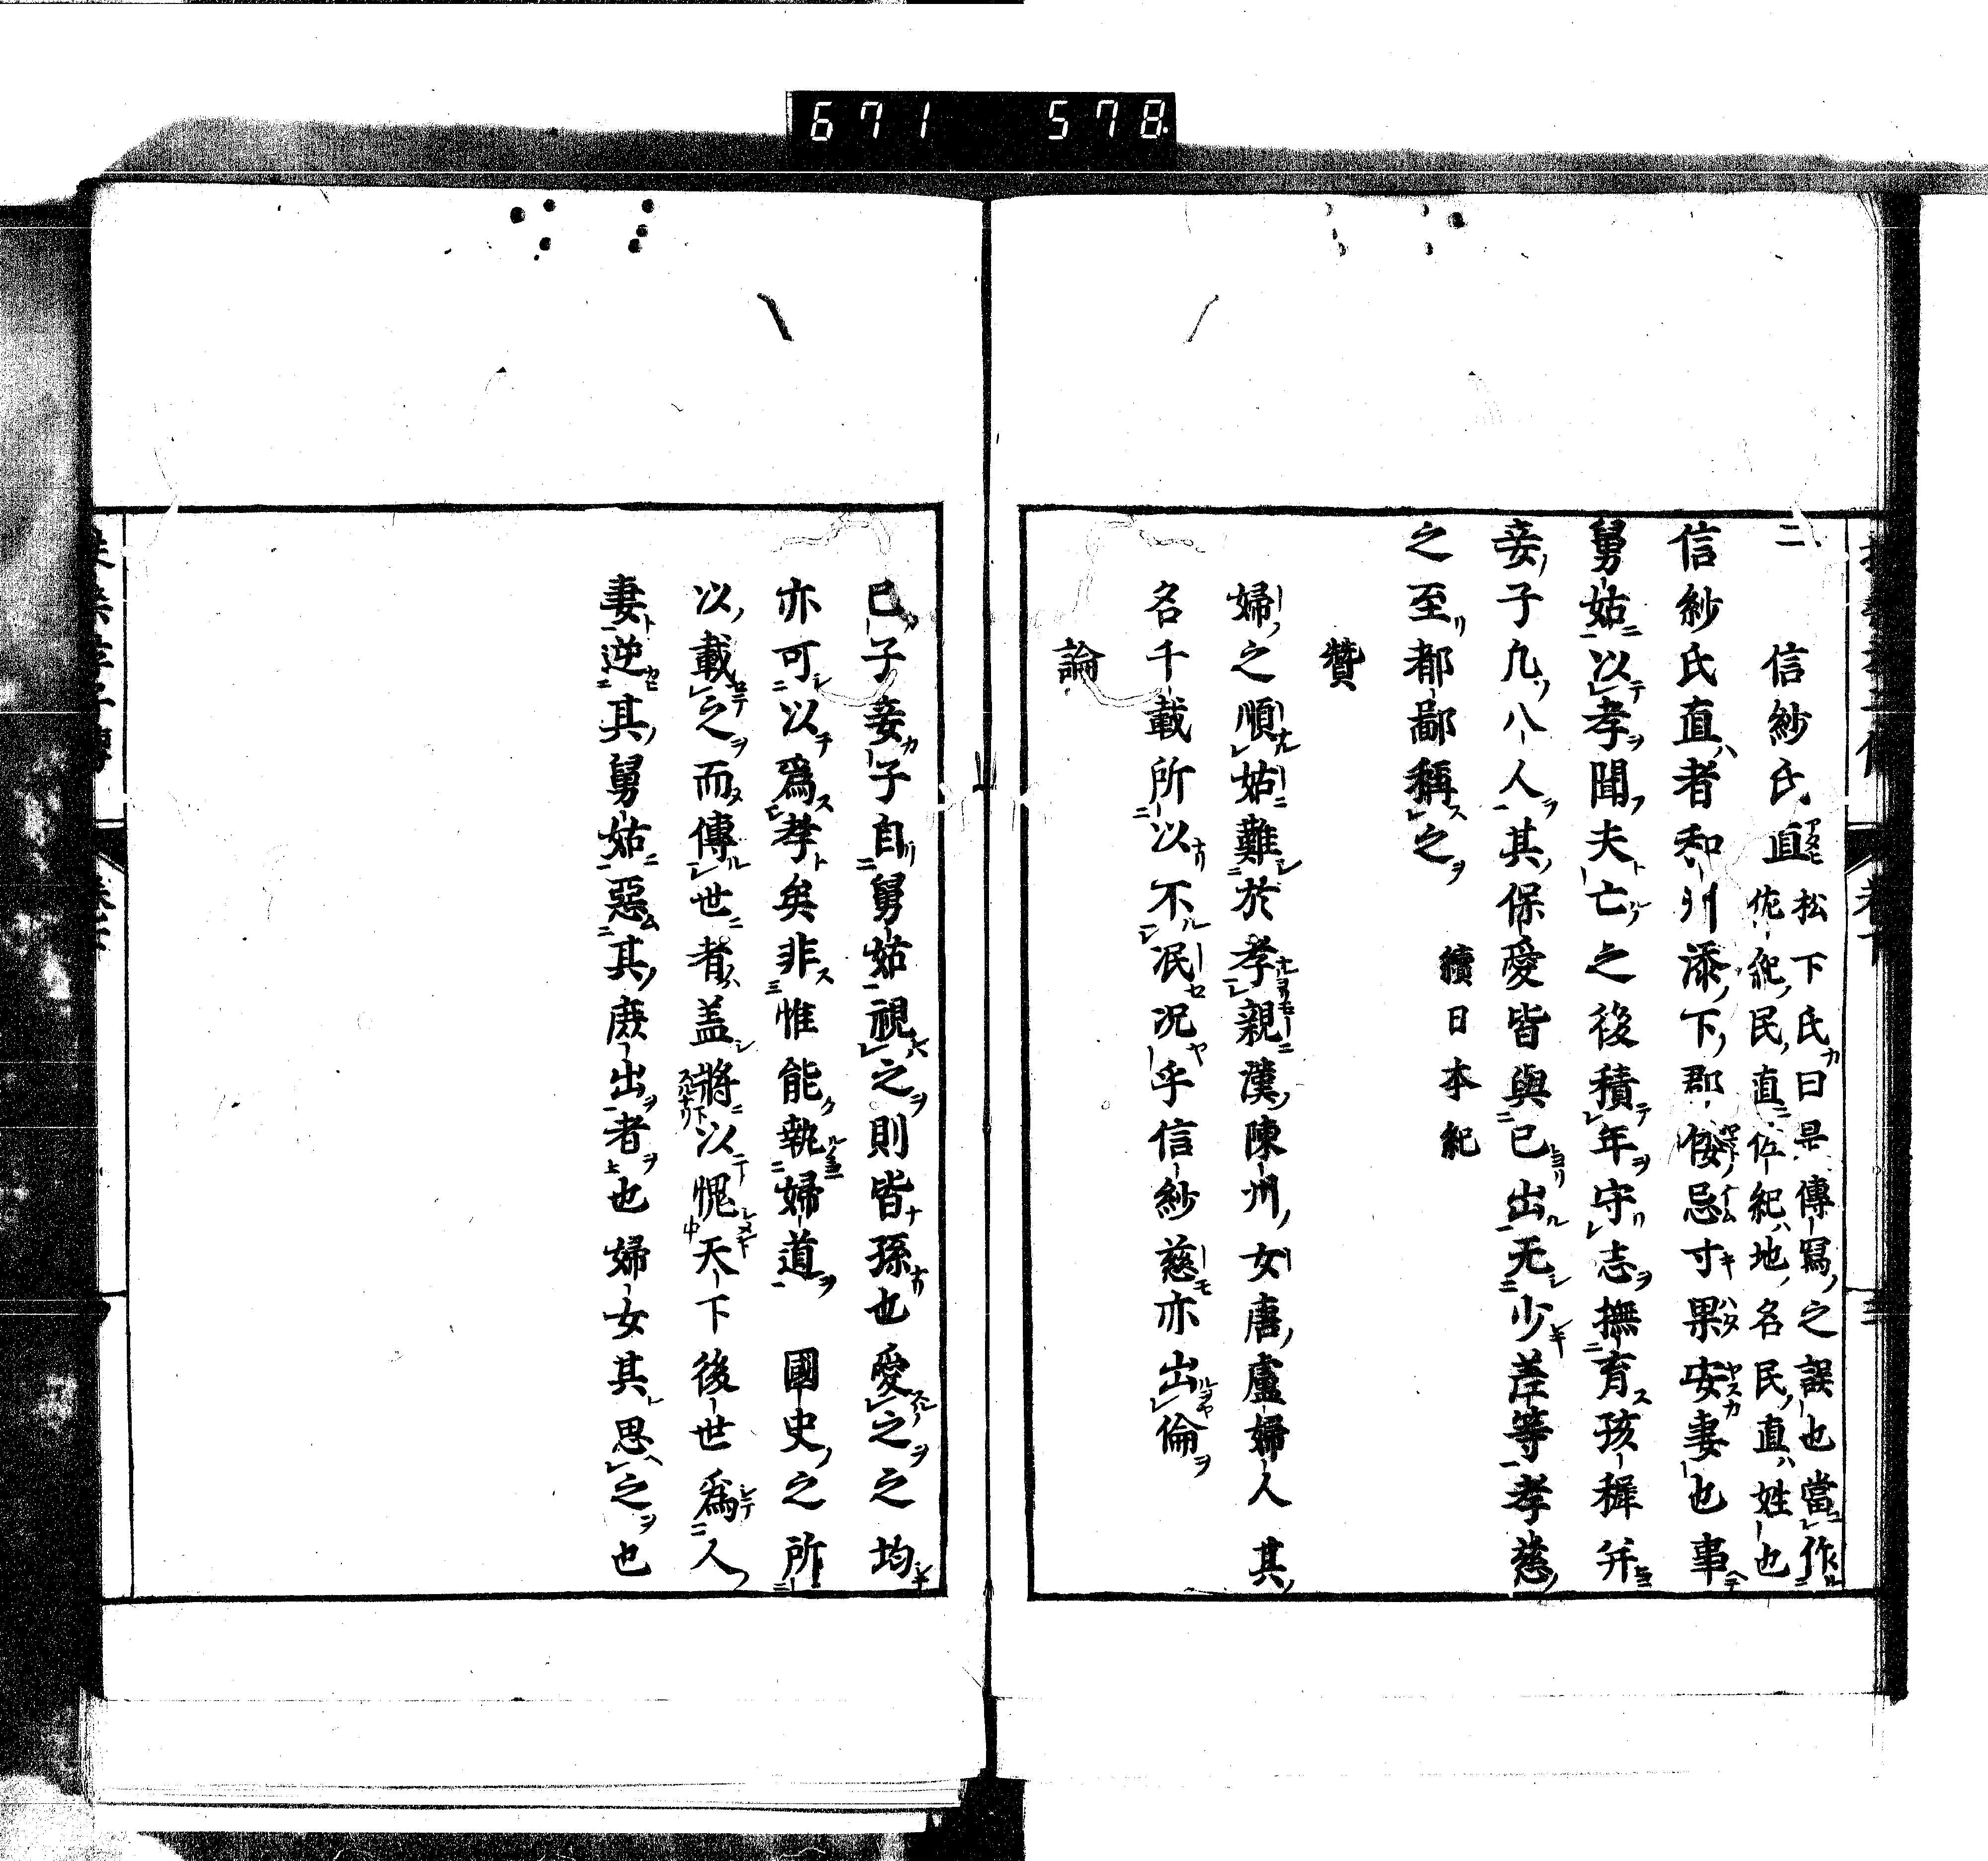 671 578
二 信紗氏直 松下氏曰是傳寫之誤也當作
佐紀民直佐紀地名民直姓也
信紗氏直者和州添下郡倭忌寸果安妻也事
舅姑以孝聞夫亡之後積年守志撫育孩穉并
妾子凡八人其保愛皆與已出无少差等孝慈
之至都鄙稱之 續日本紀
贊
婦之順姑難於孝親漢陳州女唐盧婦人其
名千載所以不泯况乎信紗慈亦出倫
論
已子妾子自舅姑視之則皆孫也愛之之均
亦可以爲孝矣非惟能執婦道 國史之所
以載之而傳世者盖將以愧天下後世爲人
妻逆其舅姑惡其庶出者也婦女其思之也